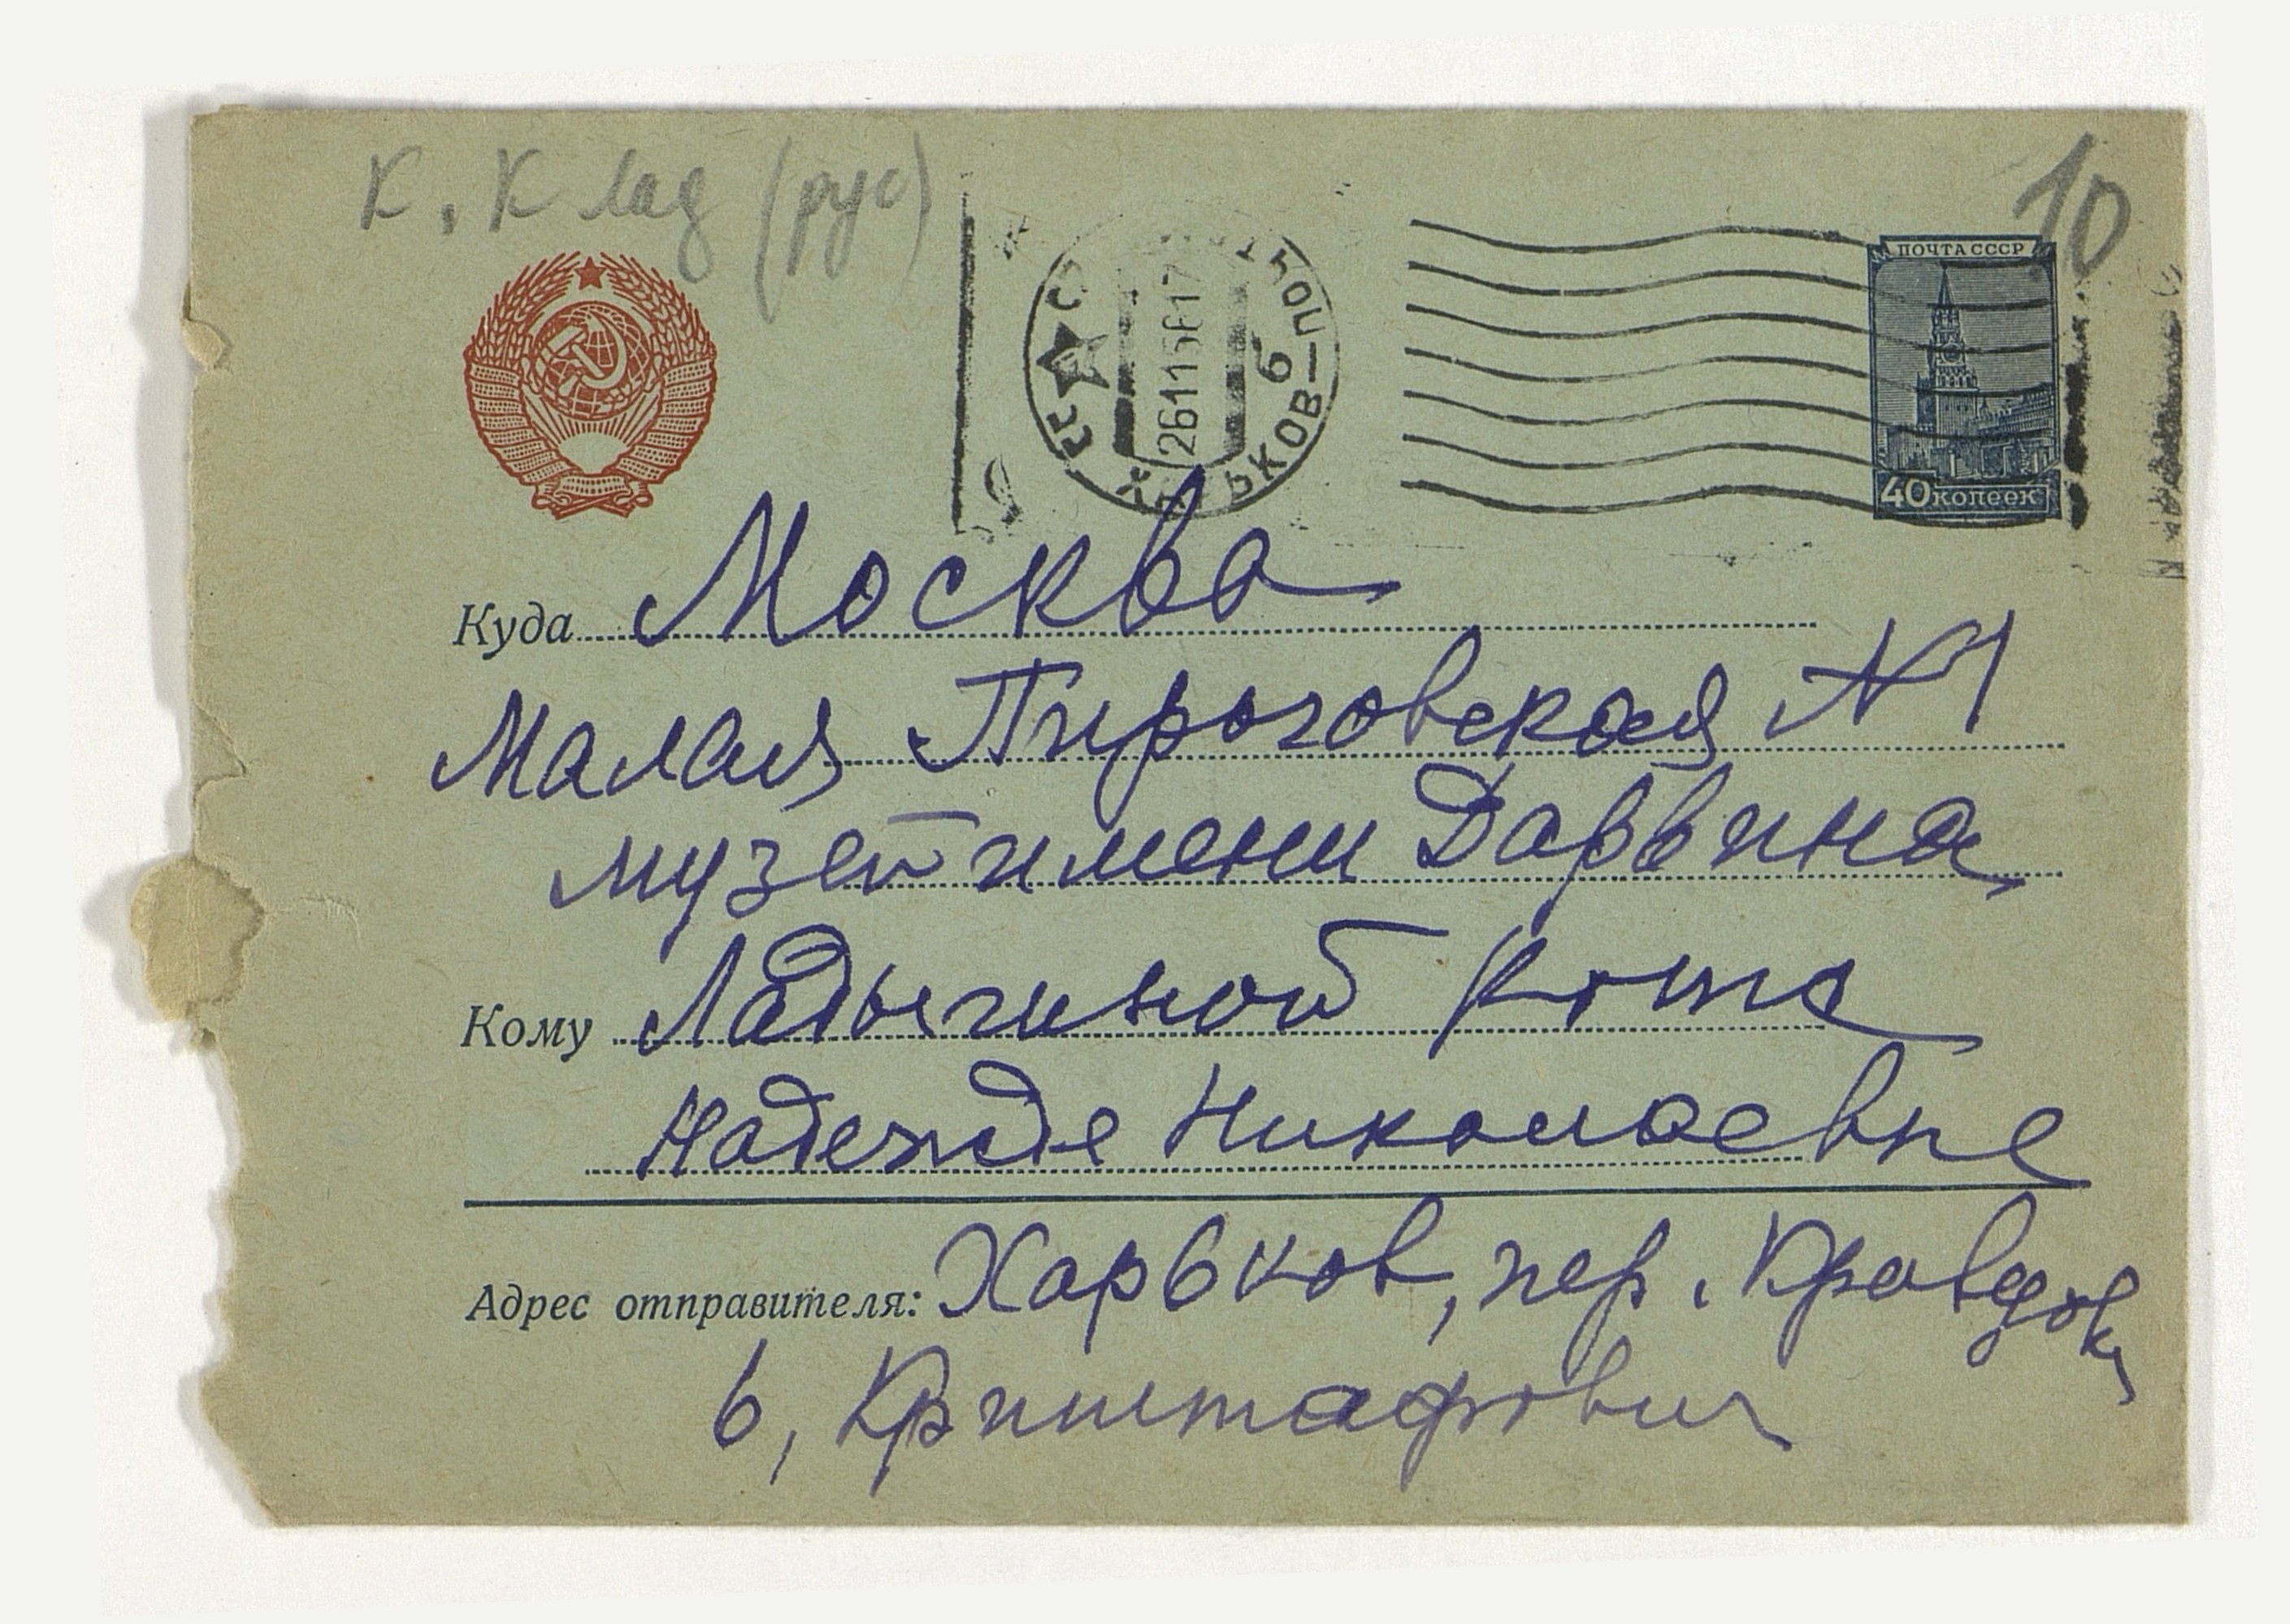 К. К Лад (рус)
10
ПОЧТА СССР
40 копеек
26 11 56 17
ХАРЬКОВ—ПОЧ
6
Куда Москва
Малая Пироговская N 1
музей имени Дарвина,
Кому Ладыгиной Котс
Надежде Николаевне
Адрес отправителя: Харьков, пер. Кравцова
6, Криштафович